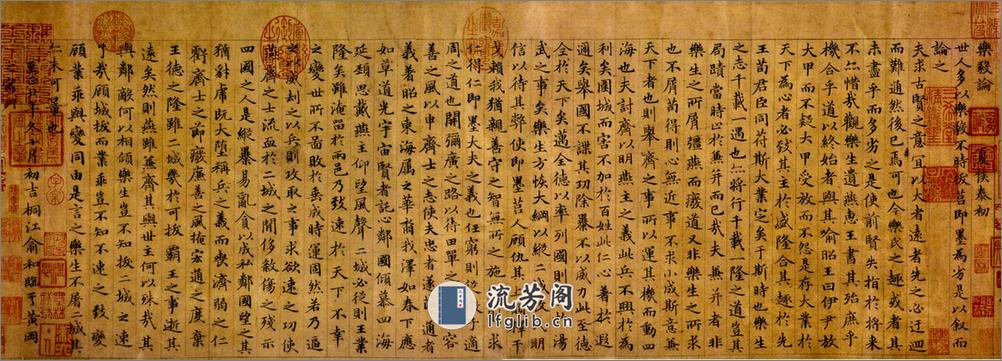 樂毅論
夏侯泰初
世人多以樂毅不時拔莒即墨為劣是以叙而
論之
夫求古賢之意宜以大者遠者先之必迂迴
而難通然後已焉可也今樂氏之趣或者其
未盡乎而多劣之是使前賢失指於將來
不亦惜哉觀樂生遺燕惠王書其殆庶乎
機合乎道以終始者與其喻昭王曰伊尹放
大甲而不疑大甲受放而不怨是存大業於
至公而以天下為心者也夫欲極道之量務以
天下為心者必致其主於盛隆合其趣於先
王苟君臣同符斯大業定矣于斯時也樂生
之志千載一遇也亦將行千載一隆之道豈其
局蹟當時止於兼并而已哉夫兼并者非
樂生之所屑彊燕而廢道又非樂生之所求
也不屑苟得則心無近事不求小成斯意兼
天下者也則舉齊之事所以運其機而動四
海也夫討齊以明燕主之義此兵不興於為
利矣圍城而害不加於百姓此仁心著於遐
迩矣舉國不謀其功除暴不以威力此至德
全於天下矣邁全德以率列國則幾於湯
武之事矣樂生方恢大綱以縱二城牧民明
信以待其弊使即墨莒人顧仇其上願釋干
戈賴我猶親善守之智無所之施然則求
仁得仁即墨大夫之義也任窮則從微子適
周之道也開彌廣之路以待田單之徒長容
善之風以申齊士之志使夫忠者遂節通者
義著昭之東海属之華裔我澤如春下應
如草道光宇宙賢者託心鄰國傾慕四海
延頸思戴燕主仰望風聲二城必從則王業
隆矣雖淹留於兩邑乃致速於天下不幸
之變世所不圖敗於垂成時運固然若乃逼
之以威刼之以兵則攻取之事求欲速之功使
燕齊之士流血於二城之閒侈殺傷之殘示
四國之人是縱暴易亂貪以成私鄰國望之其
猶豺虎既大墮稱兵之義而喪濟弱之仁
虧齊士之節廢廉善之風掩宏通之度棄
王德之隆雖二城幾於可拔霸王之事逝其
遠矣然則燕雖兼齊其與世主何以殊哉其
與鄰敵何以相傾樂生豈不知拔二城之速
了哉顧城拔而業乖豈不知不速之致變
顧業乖與變同由是言之樂生不屠二城其
未可量也
冬十月初吉桐江俞和臨于黄岡
流芳阁
lfglib.cn